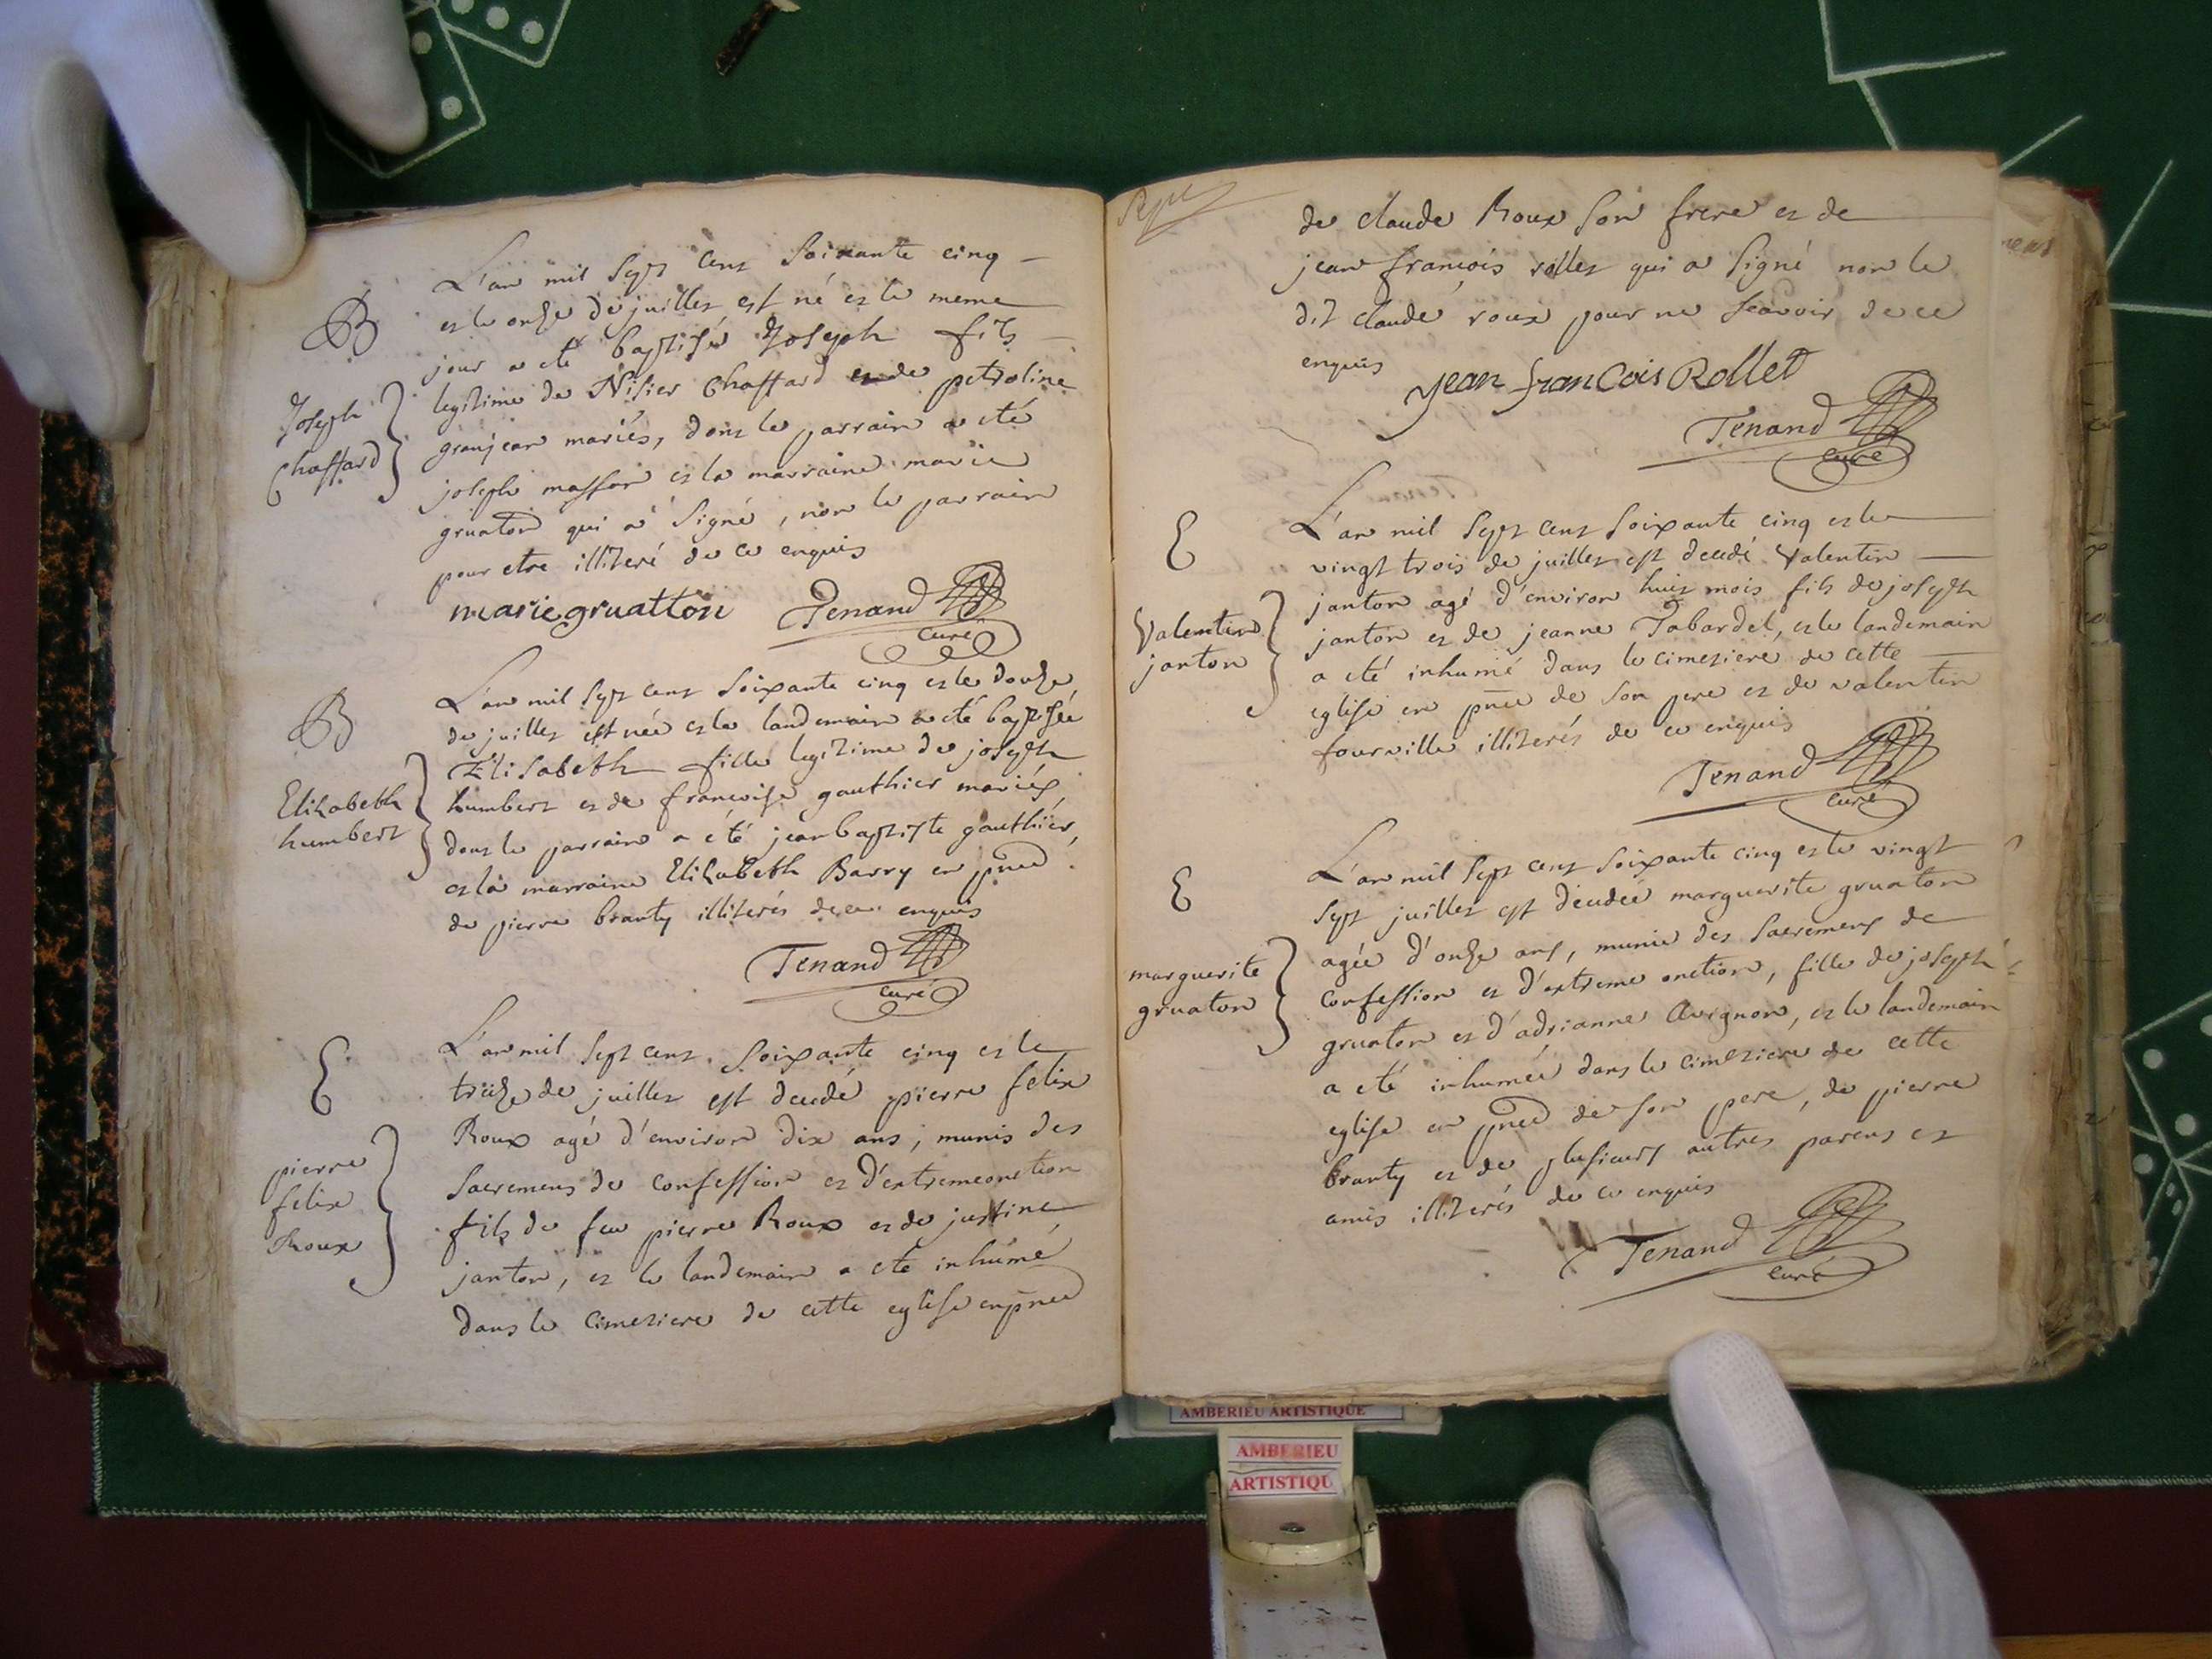 L'an mil sept cent soixante cinq
et le onze de juillet est né et le meme
B
jour a eté baptisé Joseph fils
legitime de Nisier Chaffard et de petroline
Joseph
Chaffard
granjean mariés, dont le parrain a eté
joseph masson et la marraine marie
gruaton qui a signé, non le parrain
pour etre illiteré de ce enquis
marie gruatton Tenand
curé
L'an mil sept cent soixante cinq et le douze
B
de juillet est née et le landemain a eté baptisée
Elisabeth fille legitime de joseph
Elizabeth
humbert
humbert et de francoise gauthier mariés,
dont le parrain a été jean baptiste gauthier,
et la marraine Elizabeth Barry en pñce
de pierre branty illiterés de ce enquis
Tenand
curé
L'an mil sept cent soixante cinq et le
E
treize de juillet est decedé pierre felix
Roux agé d'environ dix ans, munis des
pierre
felix
Roux
sacremens de confession et d'extremeonction
fils de feu pierre Roux et de justine
janton, et le landemain a eté inhumé
dans le cimetiere de cette eglise en pñce
de claude Roux son frere et de
jean françois rollet qui a signé non le
dit claude roux pour ne scavoir de ce
enquis
jean franCois Rollet
Tenand
curé
E
L'an mil sept cent soixante cinq et le
vingt trois de juillet est decedé Valentin
janton agé d'environ huit mois fils de joseph
Valentin
janton
janton et de jeanne Tabardel, et le landemain
a eté inhumé dans le cimetiere de cette
eglise en pñce de son pere et de valentin
fourville illiterés de ce enquis
Tenand
curé
L'an mil sept cent soixante cinq et le vingt
E
sept juillet est decedée marguerite gruaton
agée d'onze ans, munie des sacremens de
marguerite
gruaton
confession et d'extreme onction, fille de joseph
gruaton et d'adrianne Avignon, et le landemain
a eté inhumée dans le cimetiere de cette
eglise en pñce de son pere, de pierre
branty et de plusieurs autres parens et
amis illiterés de ce enquis
Tenand
curé
AMBERIEU ARTISTIQUE
AMBERIEU
ARTISTIQU